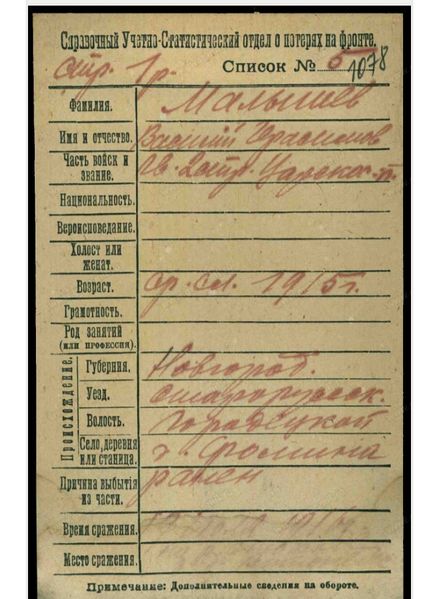 Справочный Учетно-Статистический отдел о потерях на фронте.
стр. 1 р. Список № 5 1078
Фамилия. Малышев
Имя и отчество. Василий Герасимов
Часть войск и звание. Гв. 2 стр. Царско-
Национальность.
Вероисповедание.
Холост или женат.
Возраст. ср. сл. 1915 г.
Грамотность.
Род занятий (или профессия).
Происхождение.
Губерния. Новгород.
Уезд. старорусск.
Волость. Городецкой
Село, деревня или станица. д. Фомина
Причина выбытия из части. ранен
Время сражения.
Место сражения.
Примечание: Дополнительные сведения на обороте.